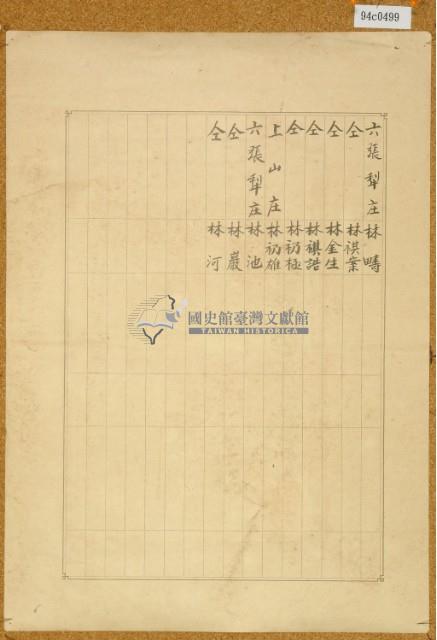 94c0499
六張犁庄 林疇
仝 林祺業
仝 林金生
仝 林祺誥
仝 林礽極
上山庄 林礽雄
六張犁庄 林池
仝 林巖
仝 林河
國史館臺灣文獻館
TAIWAN HISTORICA